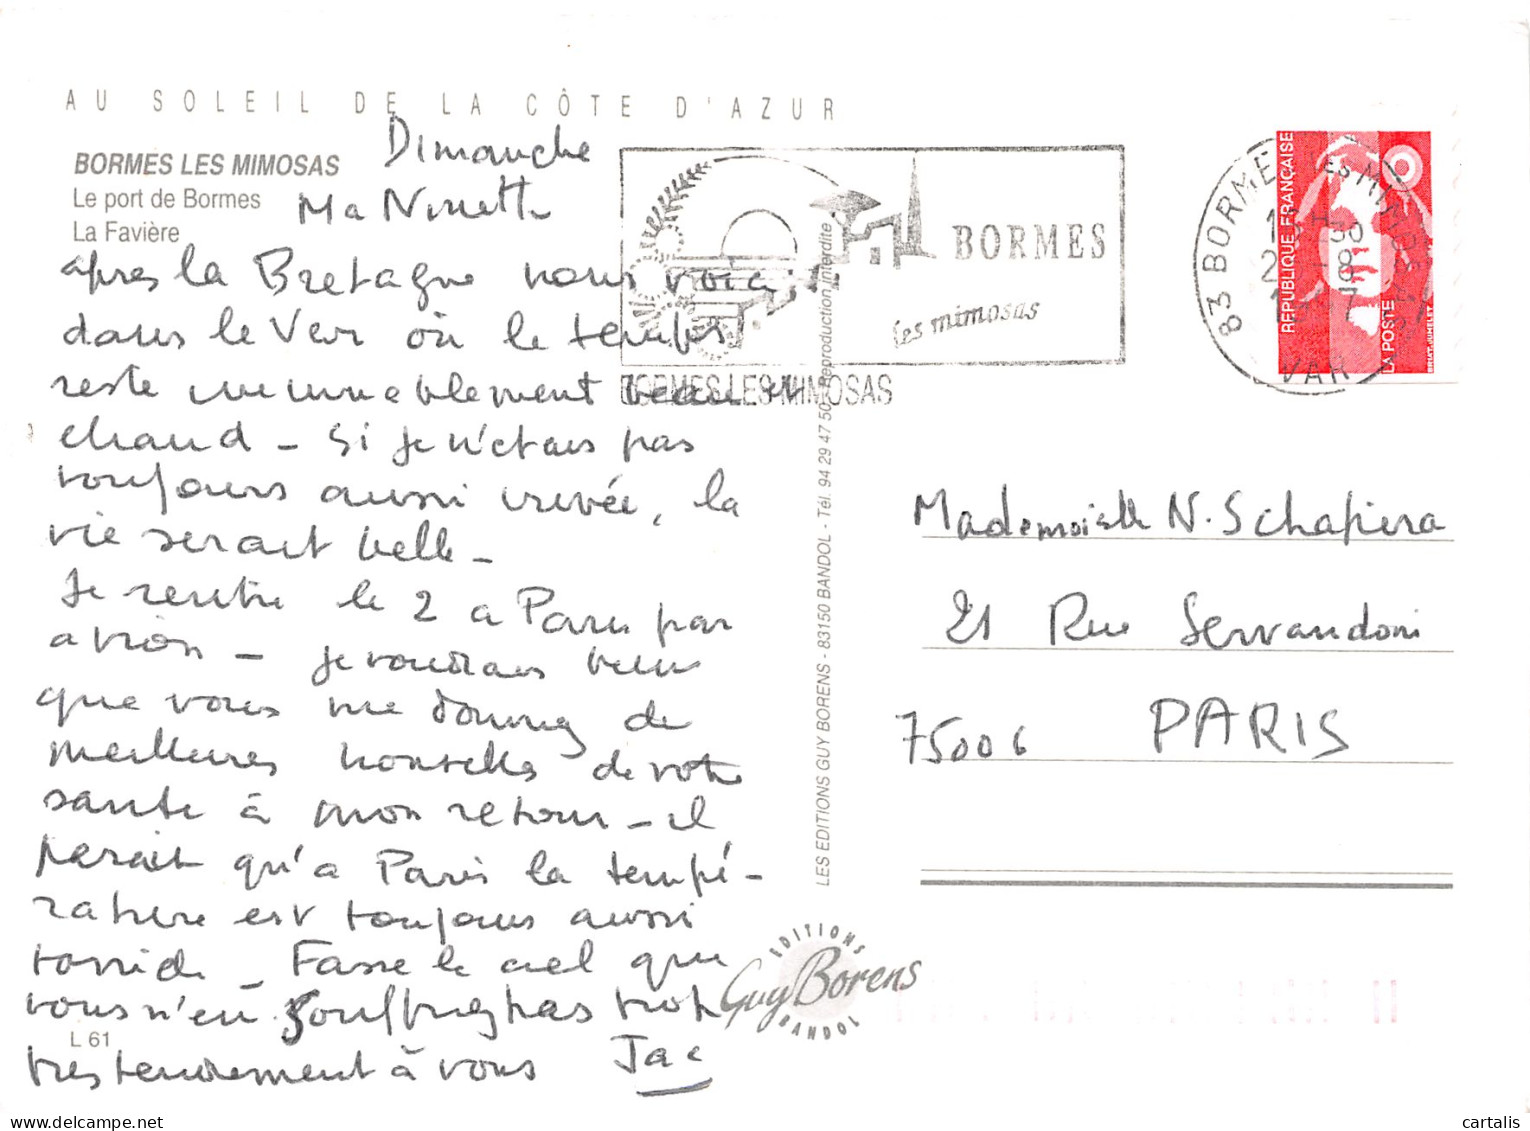 AU SOLEIL DE LA CÔTE D'AZUR
BORMES LES MIMOSAS
Le port de Bormes
La Favière
Dimanche
Ma Ninette
après la Bretagne nous voici
dans le Var où le temps
reste immuablement beau et
chaud - Si je n'étais pas
toujours aussi crevée, la
vie serait belle -
Je rentre le 2 à Paris par
avion - je voudrais bien
que vous me donniez de
meilleures nouvelles de votre
santé à mon retour - il
parait qu'à Paris la tempé-
rature est toujours aussi
torride - Fasse le ciel que
vous n'en souffriez pas trop
très tendrement à vous Jac
L 61
BORMES
les mimosas
BORMES LES MIMOSAS
83 BORMES LES MIMOSAS
VAR
RÉPUBLIQUE FRANÇAISE
LA POSTE
BRIAT-JUMELET
LES EDITIONS GUY BORENS - 83150 BANDOL - Tél. 94 29 47 50 Reproduction interdite
Mademoiselle N. Schapira
21 Rue Servandoni
75006 PARIS
EDITIONS
Guy Borens
BANDOL
cartalis